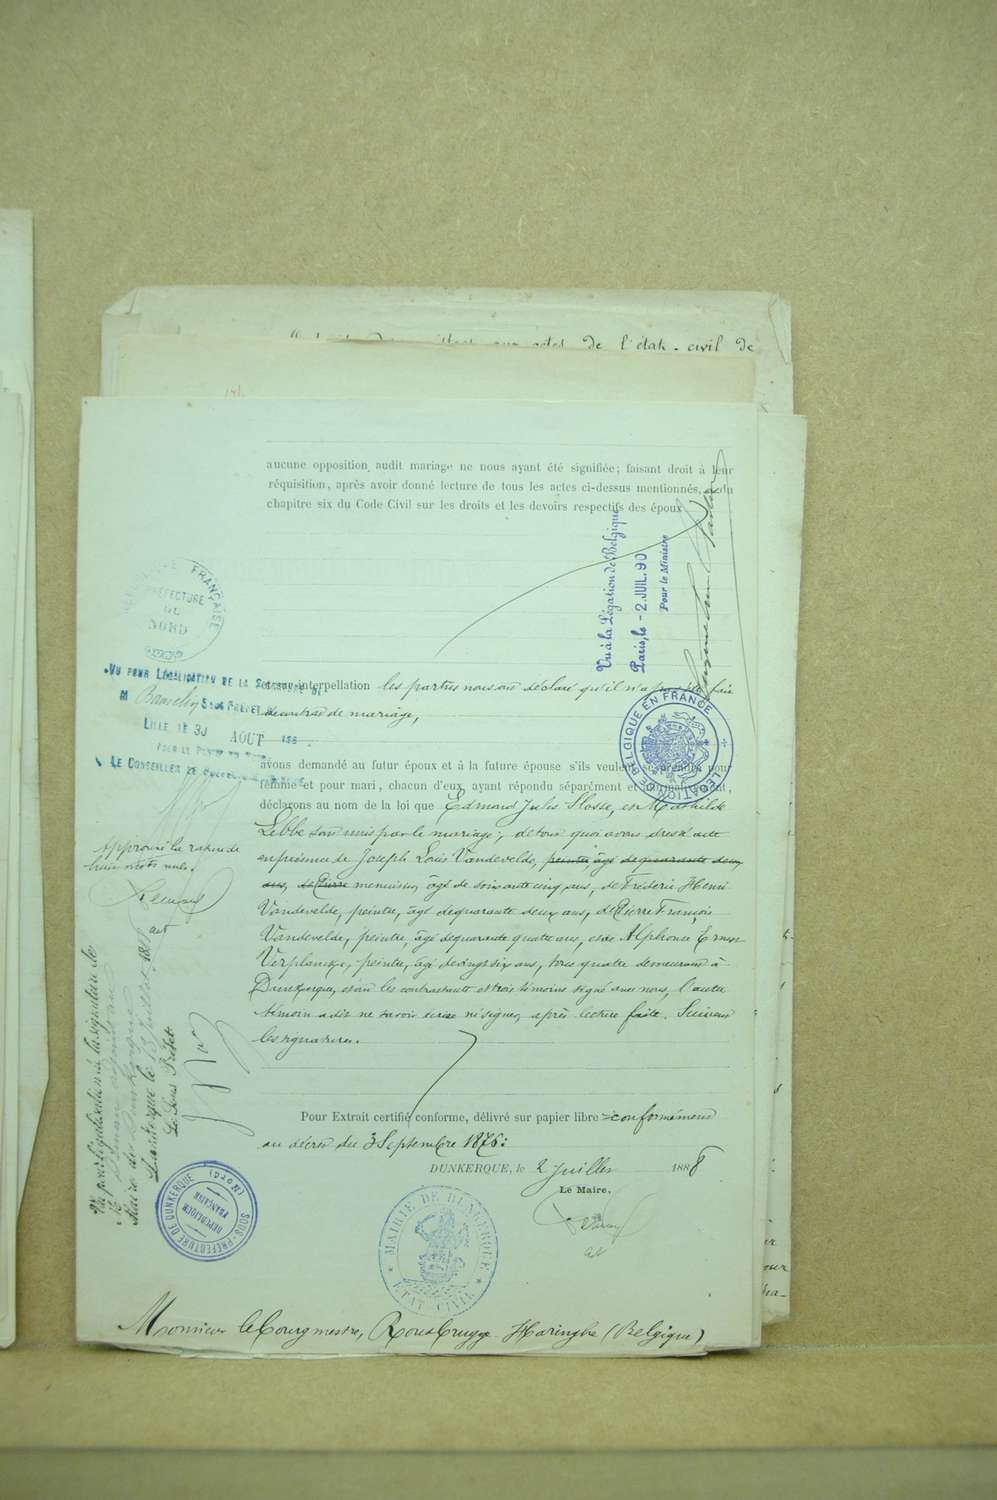 aux actes de l'état-civil de
aucune opposition audit mariage ne nous ayant été signifiée; faisant droit à leur
réquisition, après avoir donné lecture de tous les actes ci-dessus mentionnés, du
chapitre six du Code Civil sur les droits et les devoirs respectifs des époux
Vu à la Légation de Belgique
Paris, le - 2. JUIL. 90
Pour le Ministre
FRANÇAISE
PRÉFECTURE
DU
NORD
VU POUR LÉGALISATION DE LA SIGNATURE DE
M Sous PRÉFET
LILLE LE 30 AOUT 188
POUR LE PRÉFET DU NORD
LE CONSEILLER DE PRÉFECTURE
et sur interpellation les parties nous ont déclaré qu'il n'a pas été fait
de contrat de mariage,
avons demandé au futur époux et à la future épouse s'ils veulent se prendre pour
femme et pour mari, chacun d'eux, ayant répondu séparément et affirmativement,
déclarons au nom de la loi que Edmond Jules Slosse, et Mathilde
Lebbe sont unis par le mariage; de tout quoi avons dressé acte
en présence de Joseph Louis Vandevelde, peintre, âgé de quarante deux
ans, de Pierre menuisier, âgé de soixante cinq ans, de Frédéric Henri
Vandevelde, peintre, âgé de quarante deux ans, de Pierre François
Vandevelde, peintre, âgé de quarante quatre ans, et de Alphonse Ernest
Verplancke, peintre, âgé de vingt six ans, tous quatre demeurant à
Dunkerque, et ont les contractants et trois témoins signé avec nous, l'autre
témoin a dit ne savoir écrire ni signer, après lecture faite. Suivent
les signatures.
LEGATION DE BELGIQUE EN FRANCE
Approuvé la rature de
huit mots nuls.
Vu pour légalisation de la signature de
M adjoint au
Maire de Dunkerque
Dunkerque le 13 Juillet 1888
Le Sous Préfet
Pour Extrait certifié conforme, délivré sur papier libre conformément
au décret du 3 Septembre 1876:
DUNKERQUE, le 2 Juillet 1888
Le Maire.
SOUS-PRÉFECTURE DE DUNKERQUE (Nord)
RÉPUBLIQUE
FRANÇAISE
MAIRIE DE DUNKERQUE
ETAT CIVIL
Monsieur le Bourgmestre, Rousbrugge-Haringhe (Belgique)